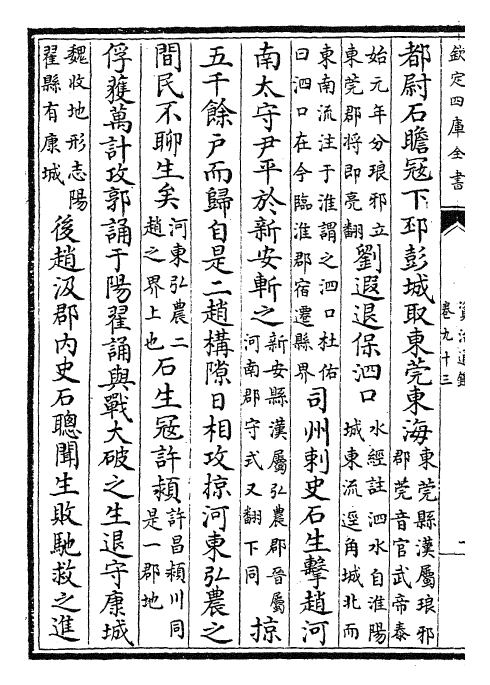 欽定四庫全書
資治通鑑
卷九十三
一
都尉石瞻冦下邳彭城取東莞東海
東莞縣漢屬琅邪
郡莞音官武帝泰
始元年分琅邪立
東莞郡将即亮翻
劉遐退保泗口
水經註泗水自淮陽
城東流逕角城北而
東南流注于淮謂之泗口杜佑
曰泗口在今臨淮郡宿遷縣界
司州刺史石生擊趙河
南太守尹平於新安斬之
新安縣漢屬弘農郡晉屬
河南郡守式又翻下同
掠
五千餘户而歸自是二趙構隙日相攻掠河東弘農之
間民不聊生矣
河東弘農二
趙之界上也
石生冦許潁
許昌潁川同
是一郡地
俘獲萬計攻郭誦于陽翟誦與戰大破之生退守康城
魏收地形志陽
翟縣有康城
後趙汲郡内史石聰聞生敗馳救之進